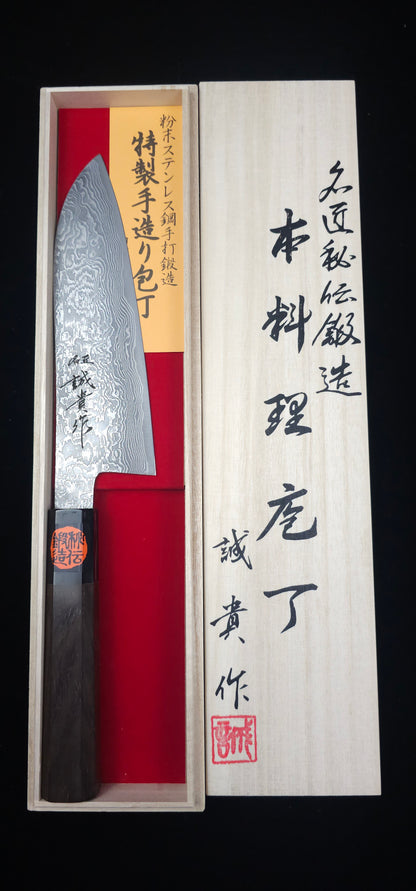 名匠秘伝鍛造
本料理庖丁
誠貴作
誠
粉末ステンレス鋼手打鍛造
特製手造り包丁
名匠
誠貴作
秘伝
鍛造